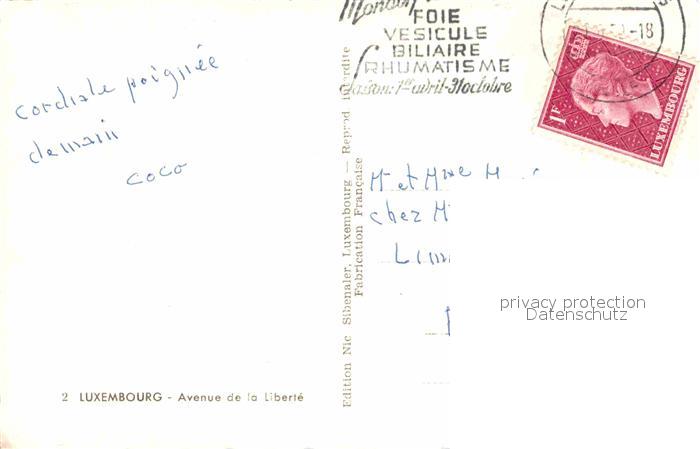 cordiale poignée
de main
coco
2 LUXEMBOURG - Avenue de la Liberté
Edition Nic Sibenaler, Luxembourg — Reprod interdite
Fabrication Française
FOIE
VESICULE
BILIAIRE
RHUMATISME
Saison: 1er avril-31 octobre
-18
1F
LUXEMBOURG
M et Mme M
chez M
privacy protection
Datenschutz